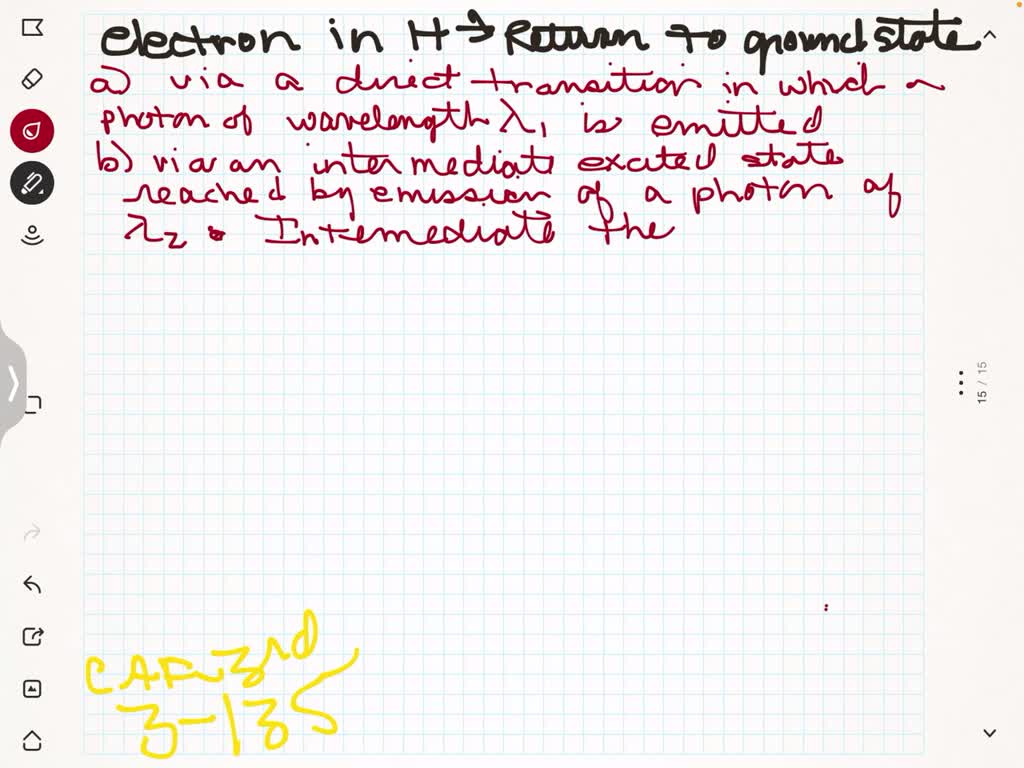 electron in H → Return to ground state
a) via a direct transition in which a
photon of wavelength λ1 is emitted
b) via an intermediate excited state
reached by emission of a photon of
λ2 • Intemediate the
15 / 15
3rd
3-135